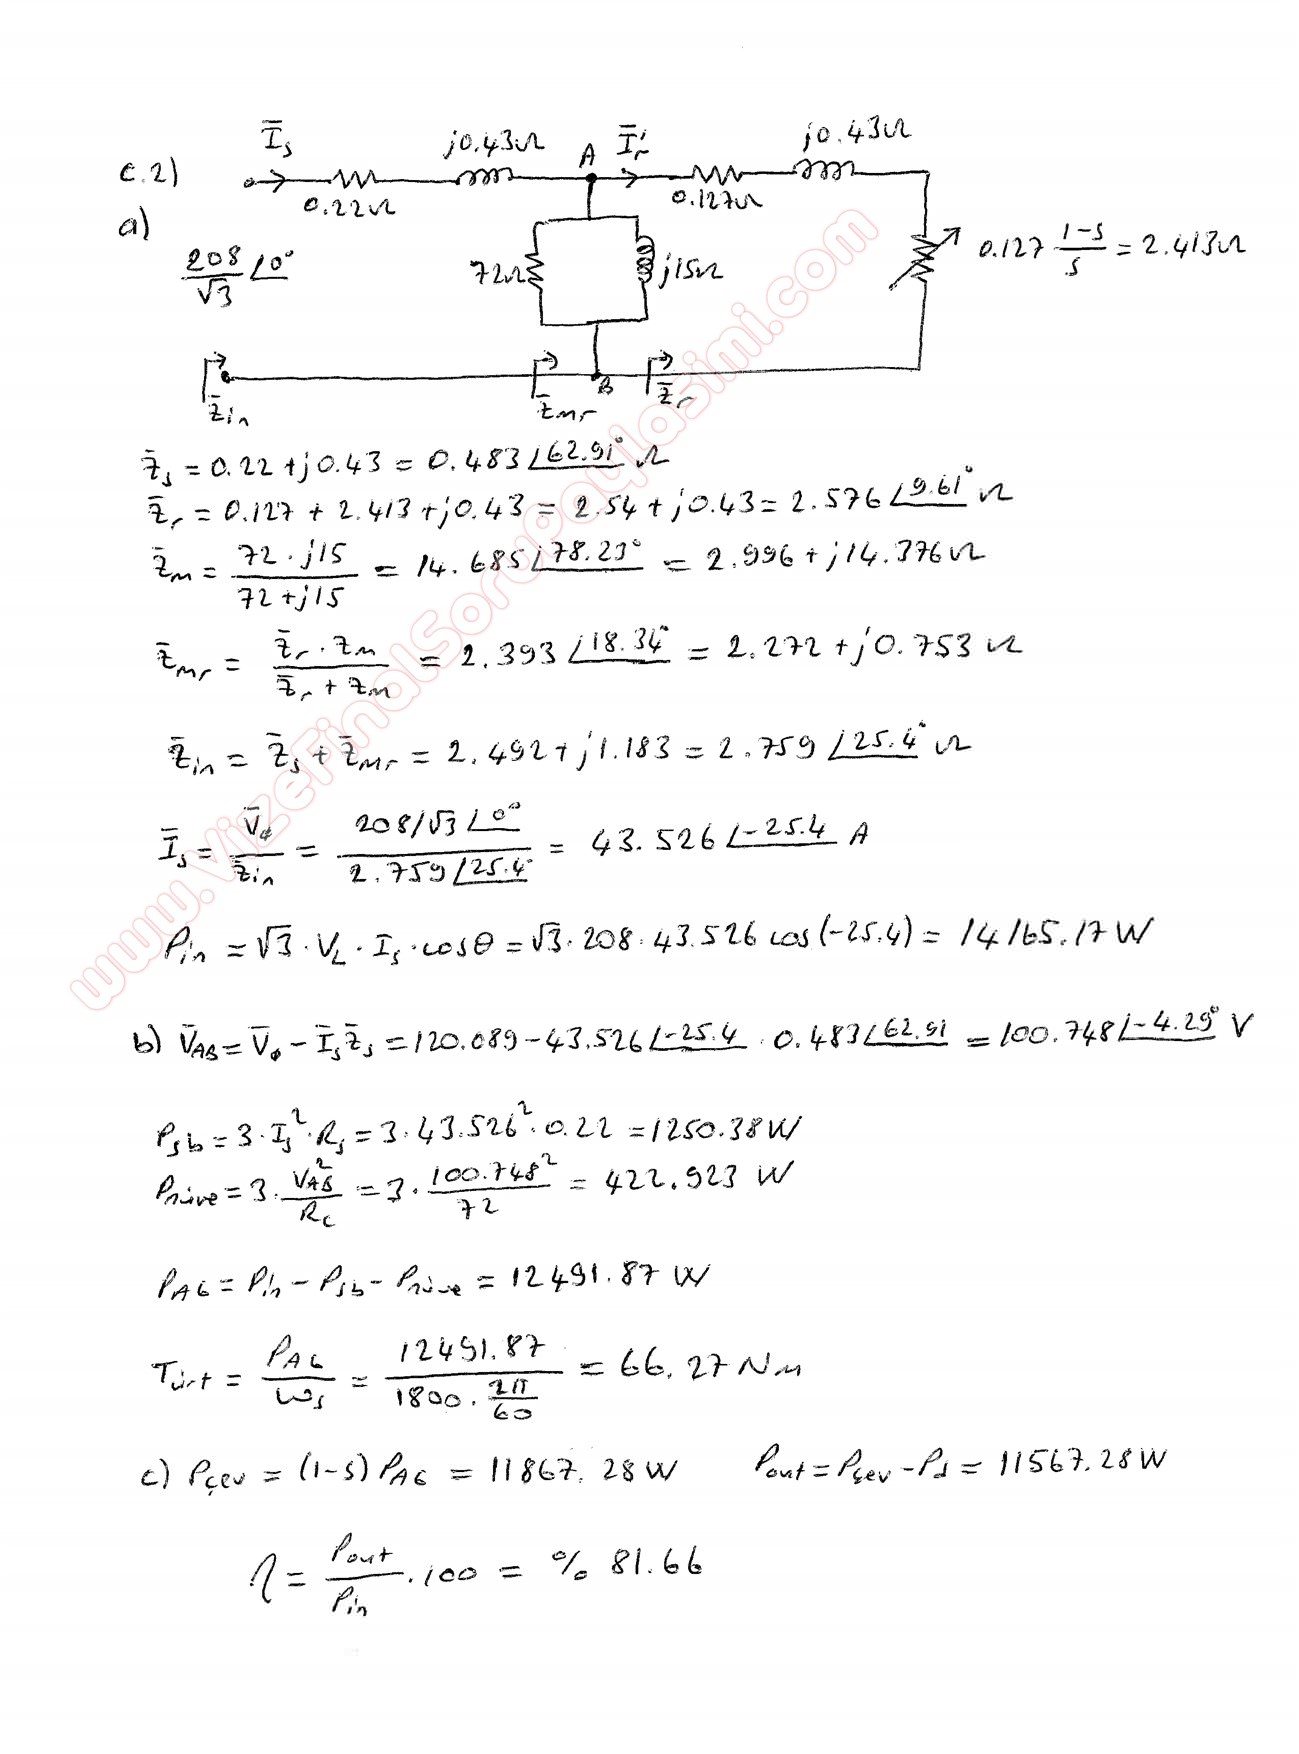 c.2)
a)
Īs
j0.43Ω
A
Ī'r
j0.43Ω
0.22Ω
0.127Ω
208/√3 ∠0°
72Ω
j15Ω
0.127 (1-s)/s = 2.413Ω
B
Z̄in
Z̄mr
Z̄r
Z̄s = 0.22 + j0.43 = 0.483 ∠62.91° Ω
Z̄r = 0.127 + 2.413 + j0.43 = 2.54 + j0.43 = 2.576 ∠9.61° Ω
Z̄m = (72 · j15)/(72 + j15) = 14.685 ∠78.23° = 2.996 + j14.376 Ω
Z̄mr = (Z̄r · Zm)/(Z̄r + Zm) = 2.393 ∠18.34° = 2.272 + j0.753 Ω
Z̄in = Z̄s + Z̄mr = 2.492 + j1.183 = 2.759 ∠25.4° Ω
Īs = V̄ϕ/Z̄in = (208/√3 ∠0°)/(2.759 ∠25.4°) = 43.526 ∠-25.4 A
Pin = √3 · VL · Is · cosθ = √3 · 208 · 43.526 cos(-25.4) = 14165.17 W
b) V̄AB = V̄ϕ - ĪsZ̄s = 120.089 - 43.526 ∠-25.4 · 0.483 ∠62.91 = 100.748 ∠-4.29° V
Psb = 3 · Is² · Rs = 3 · 43.526² · 0.22 = 1250.38 W
Pnüve = 3 · VAB²/Rc = 3 · 100.748²/72 = 422.923 W
PAG = Pin - Psb - Pnüve = 12491.87 W
Türt = PAG/ωs = 12491.87/(1800 · 2π/60) = 66.27 Nm
c) Pçev = (1-s) PAG = 11867.28 W
Pout = Pçev - Pd = 11567.28 W
η = Pout/Pin · 100 = % 81.66
www.VizeFinalSoruPaylasimi.com